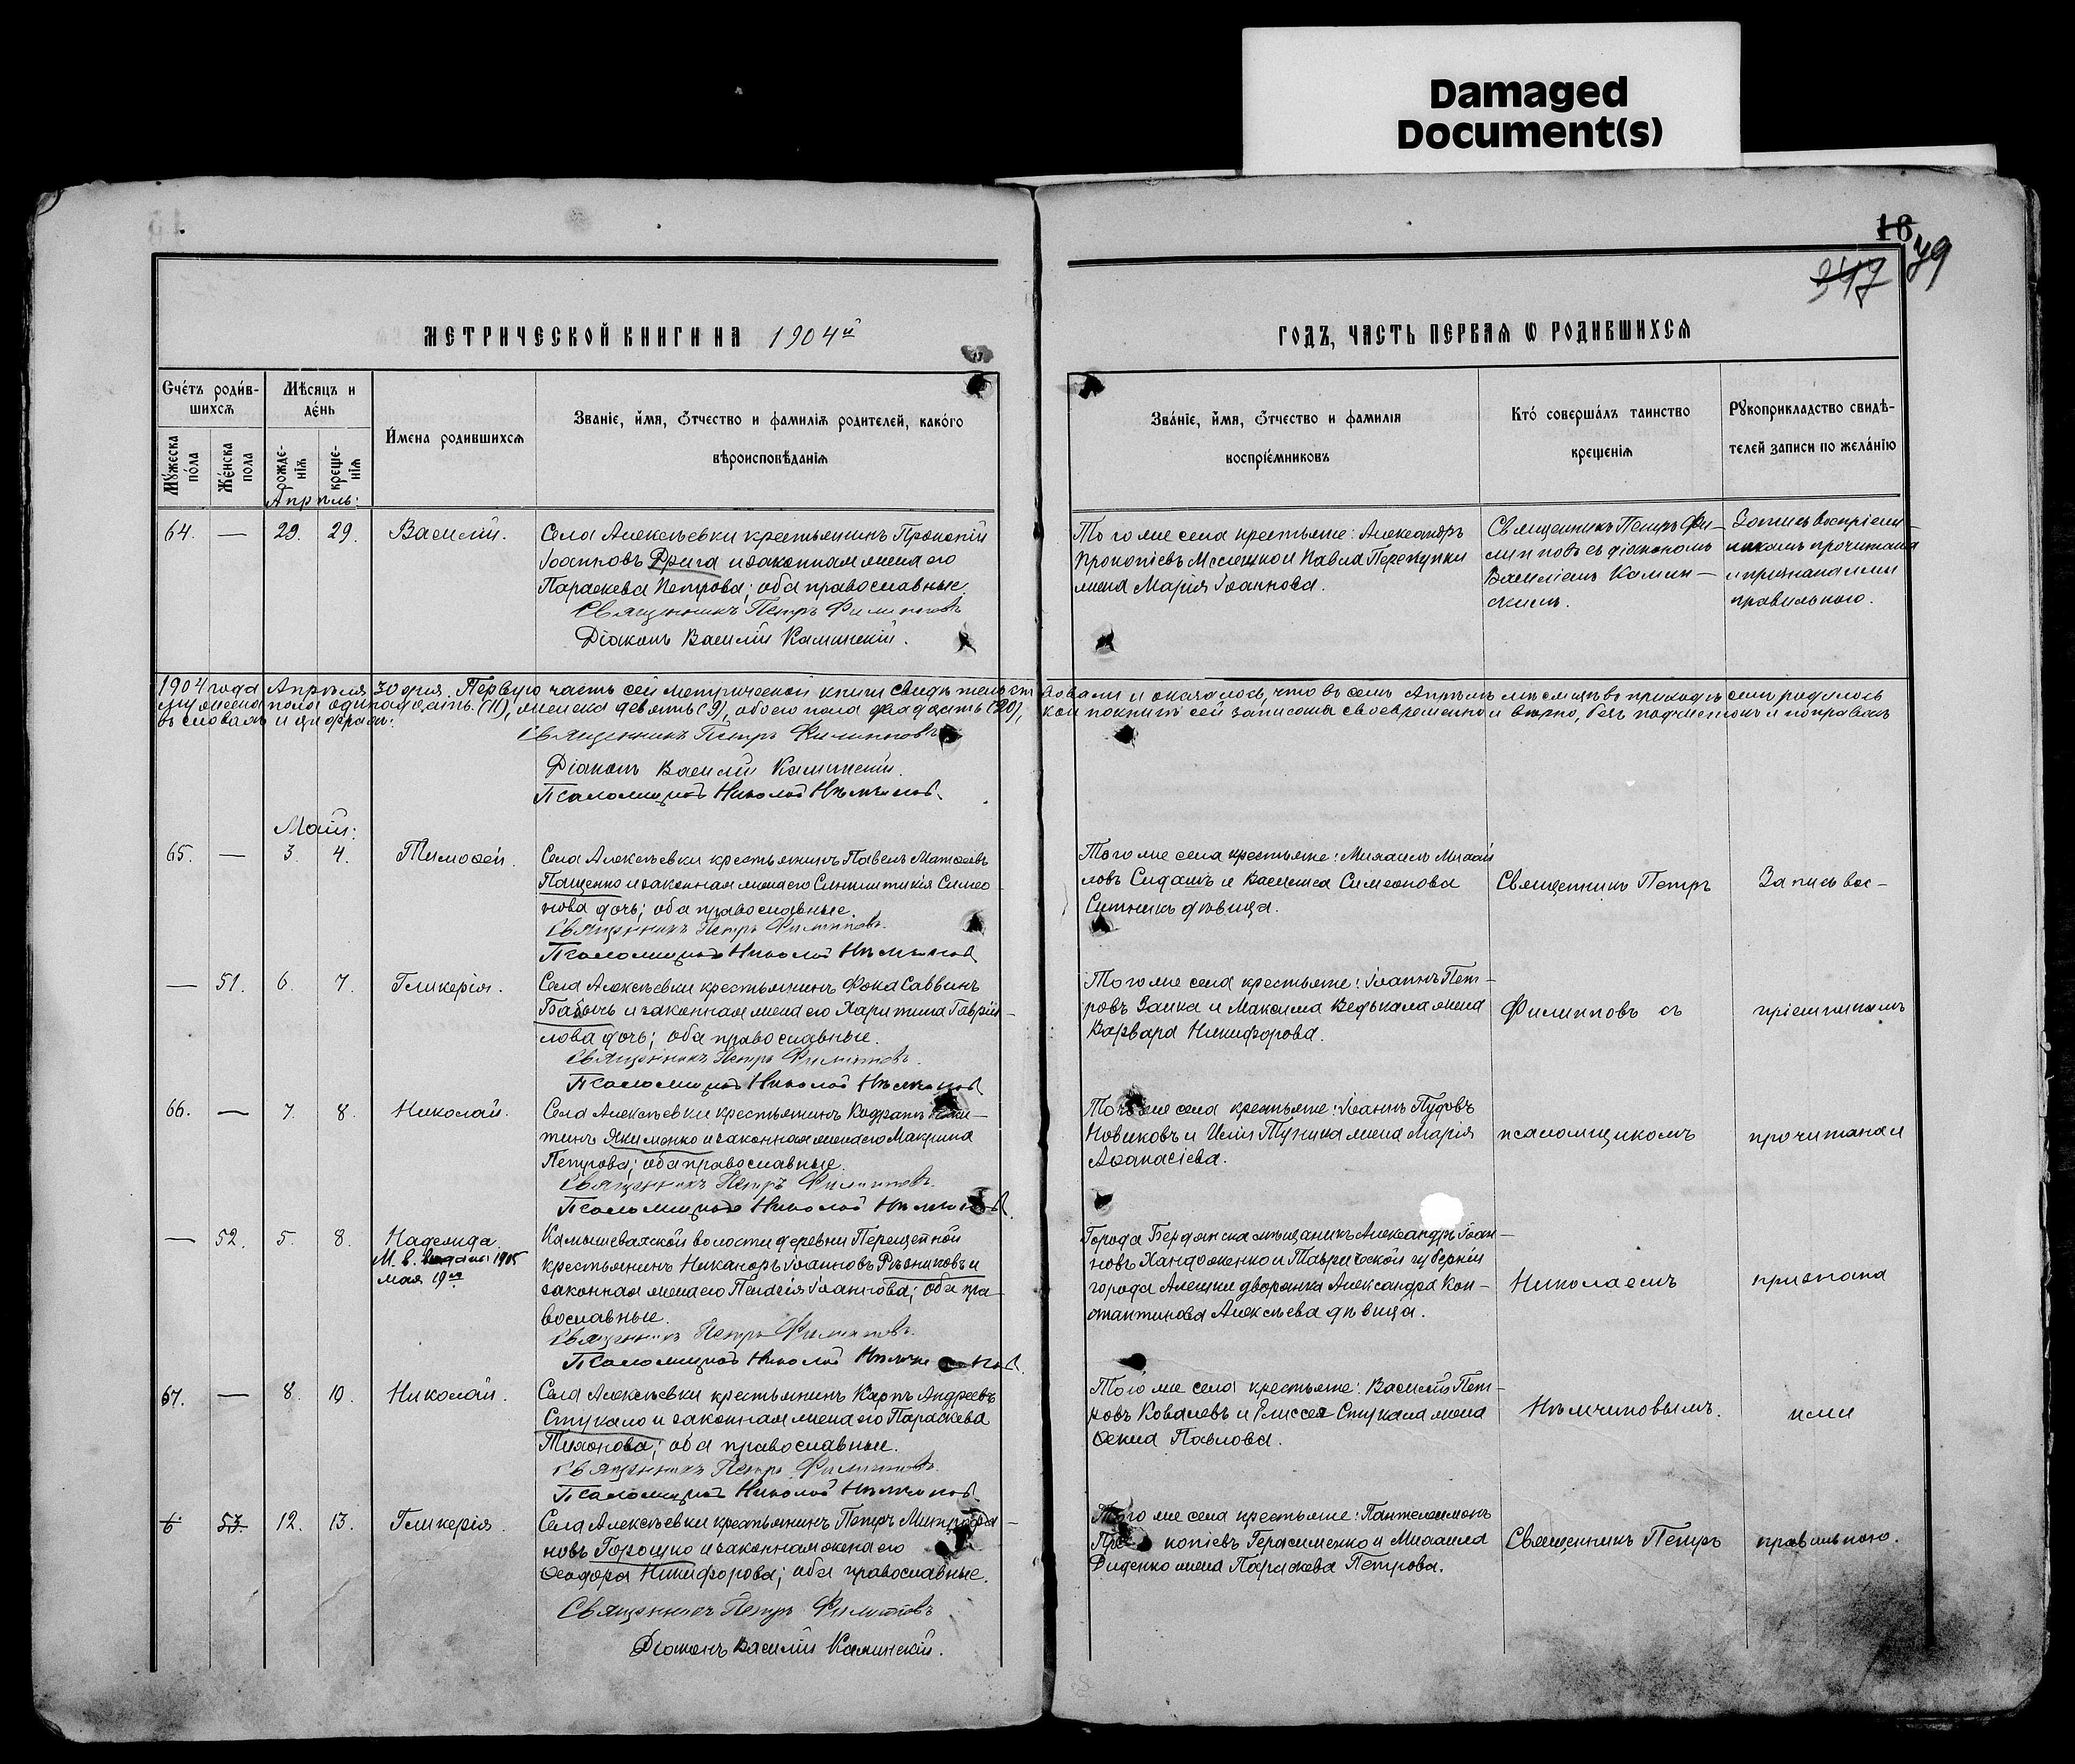 Damaged
Document(s)
16
347
79
МЕТРИЧЕСКОЙ КНИГИ НА 1904й
ГОДЪ, ЧАСТЬ ПЕРВАѦ Ѡ РОДИВШИХСѦ
Сче́тъ роди́в-
шихсѧ
Мѣсяцъ и
де́нь
Мꙋжеска
по́ла
Же́нска
пола
рожде-
нїѧ
креще-
нїѧ
И́мена родившихсѧ
Званїе, и́мя, Ѻтчество и фамилїѧ родителей, како́го
вѣроисповѣданїѧ
Зва́нїе, и́мя, Ѻтчество и фамилїя
воспрїе́мниковъ
Кто́ соверша́лъ таинство
крещенїѧ
Рꙋкоприкладство свидѣ-
телей записи по жела́нїю
Апрѣль:
64. — 29. 29. Василій.
Села Алексѣевки крестьянинъ Прокопій
Іоанновъ Дрига и законная жена его
Параскева Петрова; оба православные.
Священникъ Петръ Филипповъ
Діаконъ Василій Каминскій.
Того же села крестьяне: Александръ
Прокопіевъ и Павла Перекупки
жена Марія Іоаннова.
Священникъ Петръ Фи-
липповъ съ діакономъ
Василіемъ Камин-
скимъ.
Запись воспріем-
никамъ прочитана
и признана ими
правильною.
1904 года Апрѣля 30 дня. Первую часть сей метрической книги свидѣтельствовали и оказалось, что въ семъ Апрѣлѣ мѣсяцѣ въ приходѣ семъ родилось
мужеска пола одинадцать (11), женска девять (9), обоего пола двадцать (20), кои по книгѣ сей записаны своевременно и вѣрно, безъ подчистокъ и поправокъ
въ словахъ и цифрахъ.
Священникъ Петръ Филипповъ
Діаконъ Василій Каминскій.
Псаломщикъ Николай Нѣмчиновъ.
Май:
65. — 3. 4. Тимоѳей.
Села Алексѣевки крестьянинъ Павелъ Матѳеевъ
Пащенко и законная жена его Синклитикія Симео-
нова дочь; оба православные.
Священникъ Петръ Филипповъ.
Псаломщикъ Николай Нѣмчиновъ
Того же села крестьяне: Михаилъ Михаи
ловъ Сидашъ и Василиса Симеонова
Ситникъ дѣвица.
Священникъ Петръ
Запись вос-
— 51. 6. 7. Гликерія.
Села Алексѣевки крестьянинъ Фока Саввинъ
Бабычъ и законная жена его Харитина Гаврii-
лова дочь; оба православные.
Священникъ Петръ Филипповъ.
Псаломщикъ Николай Нѣмчиновъ
Того же села крестьяне: Іоаннъ Пет-
ровъ Заика и Максима Ведькала жена
Варвара Никифорова.
Филипповъ съ
пріемникамъ
66. — 7. 8. Николай.
Села Алексѣевки крестьянинъ Кодратъ Ники-
тинъ Якименко и законная жена его Макрина
Петрова; оба православные.
Священникъ Петръ Филипповъ.
Псаломщикъ Николай Нѣмчиновъ.
Того же села крестьяне: Іоаннъ Пудовъ
Новиковъ и Иліи Тупика жена Марія
Аѳанасіева.
псаломщикомъ
прочитана и
— 52. 5. 8. Надежда.
М. в. выдано 1905
мая 19го
Камышевахской волости деревни Перещепной
крестьянинъ Никаноръ Іоанновъ Рѣзниковъ и
законная жена его Пелагія Іоаннова; оба пра-
вославные.
Священникъ Петръ Филипповъ.
Псаломщикъ Николай Нѣмчиновъ.
Города Бердянска мѣщанинъ Александръ Іоан-
новъ Хандоженко и Таврической губерніи
города Алешки дворянка Александра Кон-
стантинова Алексѣева дѣвица.
Николаемъ
признана
67. — 8. 10. Николай.
Села Алексѣевки крестьянинъ Карпъ Андреевъ
Стукало и законная жена его Параскева
Тихонова; оба православные.
Священникъ Петръ Филипповъ.
Псаломщикъ Николай Нѣмчиновъ
Того же села крестьяне: Василій Пет-
ровъ Ковалевъ и Елиссея Стукала жена
Ѳекла Павлова.
Нѣмчиновымъ.
ими
53. 12. 13. Гликерія.
Села Алексѣевки крестьянинъ Петръ Митрофа-
новъ Горошко и законная жена его
Ѳеодора Никифорова; оба православные.
Священникъ Петръ Филипповъ
Діаконъ Василій Каминскій.
Того же села крестьяне: Пантелеимонъ
Прокопіевъ Герасименко и Михаила
Диденко жена Параскева Петрова.
Священникъ Петръ
правильною.